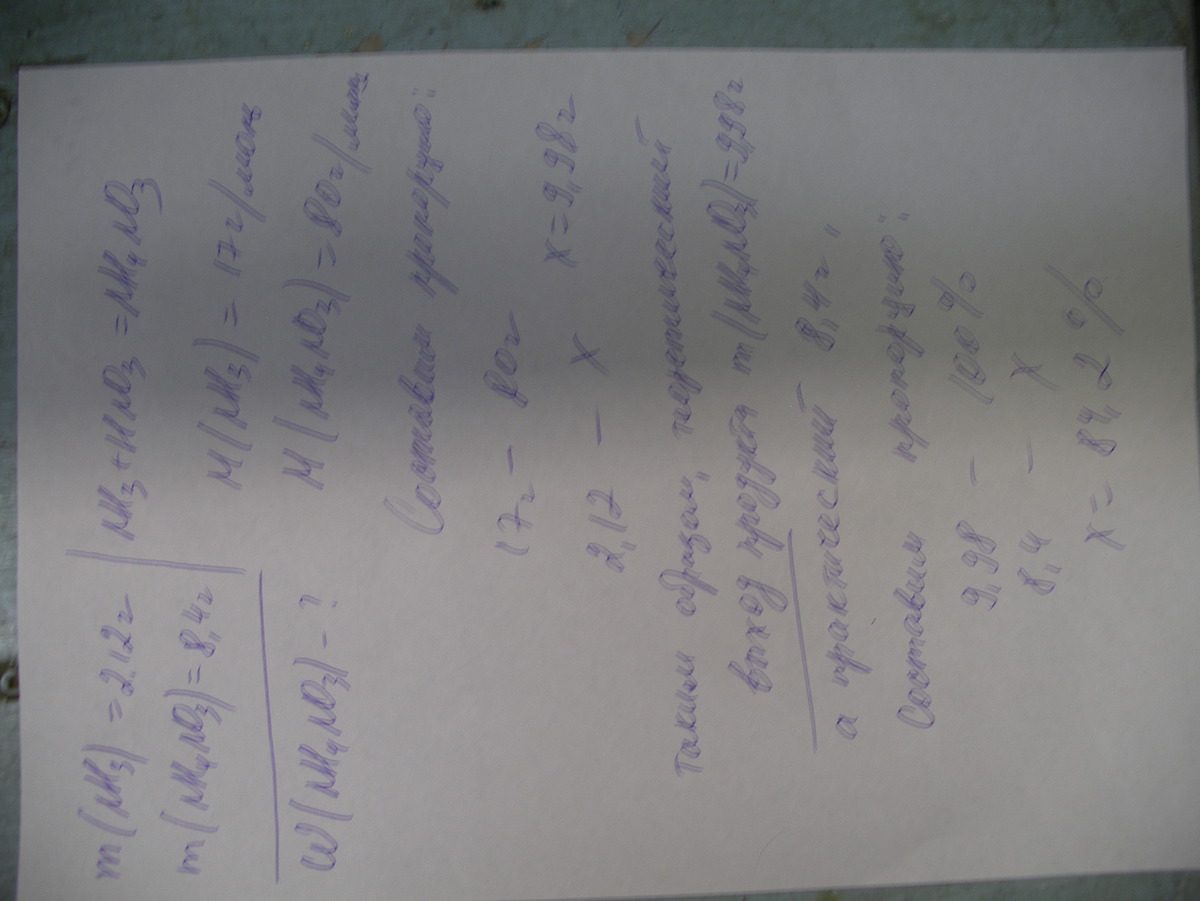 m(NH3) = 2.12г
m(NH4NO3) = 8,4г
W(NH4NO3) - ?
NH3 + HNO3 = NH4NO3
M(NH3) = 17г/моль
M(NH4NO3) = 80г/моль
Составим пропорцию:
17г - 80г
2,12 - x x = 9,98г
Таким образом, теоретический
выход продукта m(NH4NO3) = 9,98г
а практический 8,4г,
Составим пропорцию:
9,98 - 100%
8,4 - x
x = 84,2%